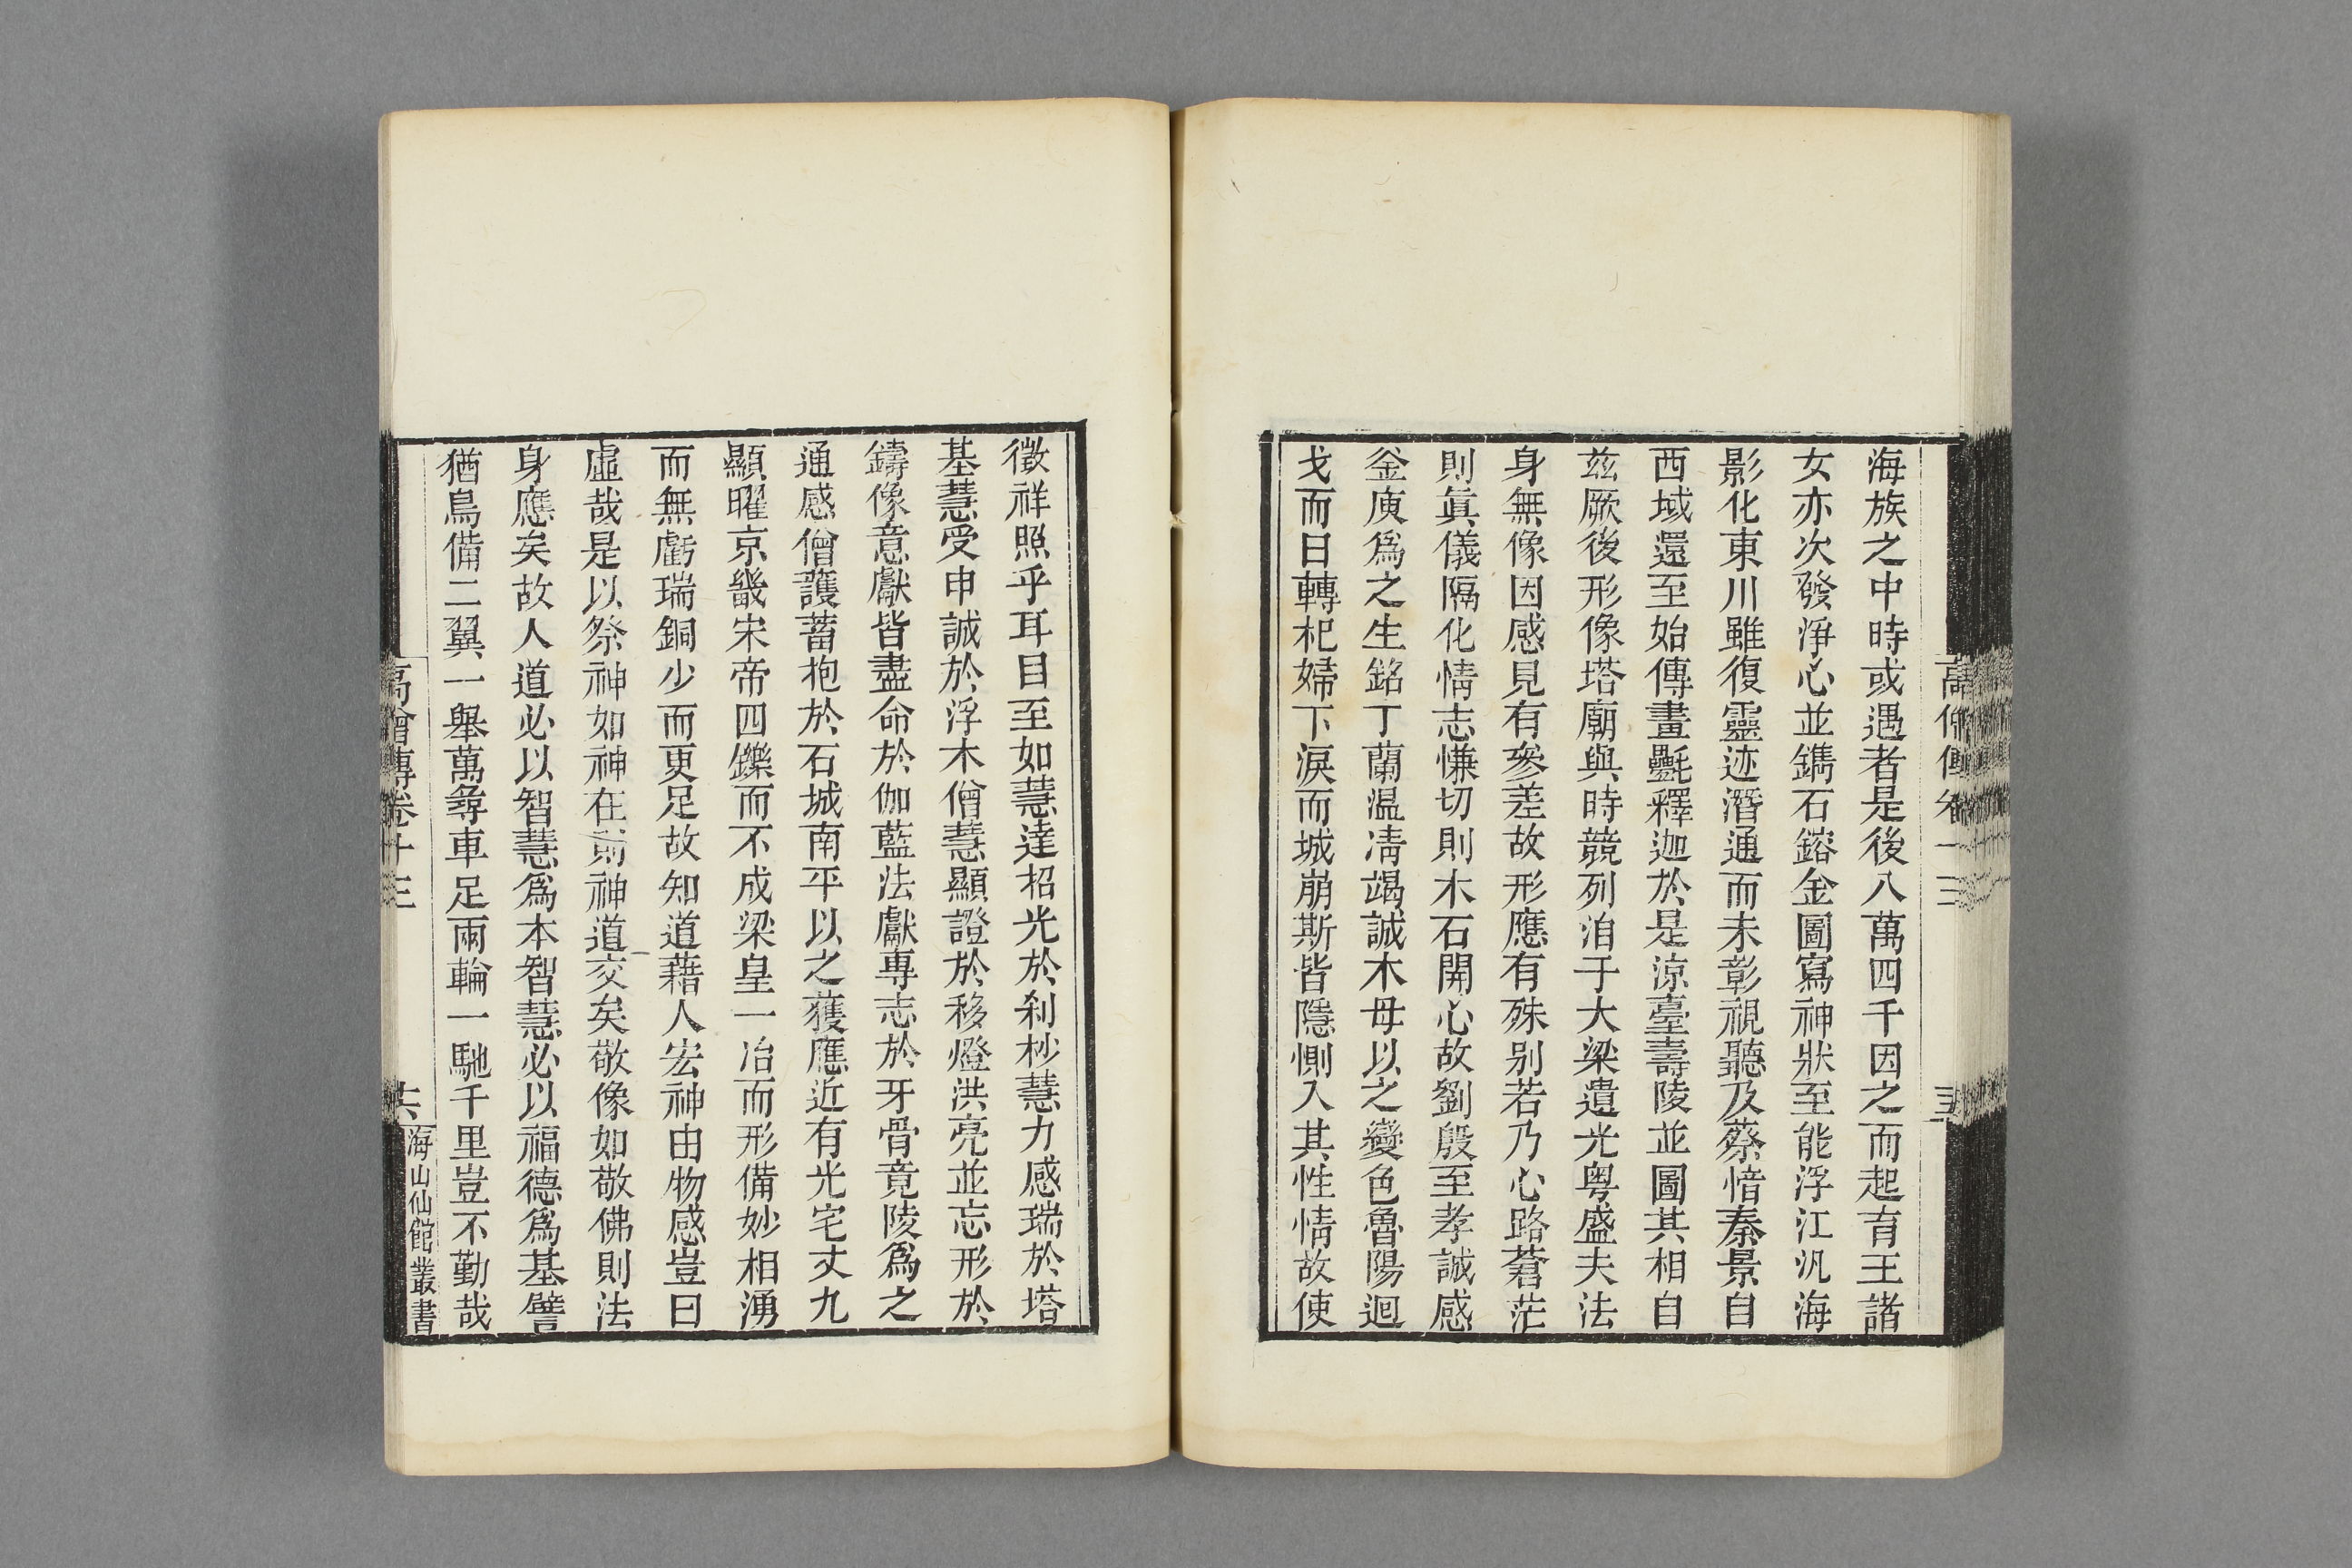 海族之中時或遇者是後八萬四千因之而起育王諸
女亦次發淨心並鐫石鎔金圖寫神狀至能浮江汎海
影化東川雖復靈迹潛通而未彰視聽及蔡愔秦景自
西域還至始傳畫氎釋迦於是涼臺壽陵並圖其相自
玆厥後形像塔廟與時競列洎于大梁遺光粤盛夫法
身無像因感見有參差故形應有殊别若乃心路蒼茫
則眞儀隔化情志慊切則木石開心故劉殷至孝誠感
釜庾爲之生銘丁蘭温凊竭誠木母以之變色魯陽迴
戈而日轉杞婦下淚而城崩斯皆隱惻入其性情故使
徵祥照乎耳目至如慧達招光於刹杪慧力感瑞於塔
基慧受申誠於浮木僧慧顯證於移燈洪亮並忘形於
鑄像意獻皆盡命於伽藍法獻專志於牙骨竟陵爲之
通感僧護蓄抱於石城南平以之蒦應近有光宅丈九
顯曜京畿宋帝四鑠而不成梁皇一冶而形備妙相湧
而無虧瑞銅少而更足故知道藉人宏神由物感豈曰
虛哉是以祭神如神在則神道交矣敬像如敬佛則法
身應矣故人道必以智慧爲本智慧必以福德爲基譬
猶鳥備二翼一舉萬尋車足兩輪一馳千里豈不勤哉
高僧傳卷十三
六
海山仙館叢書